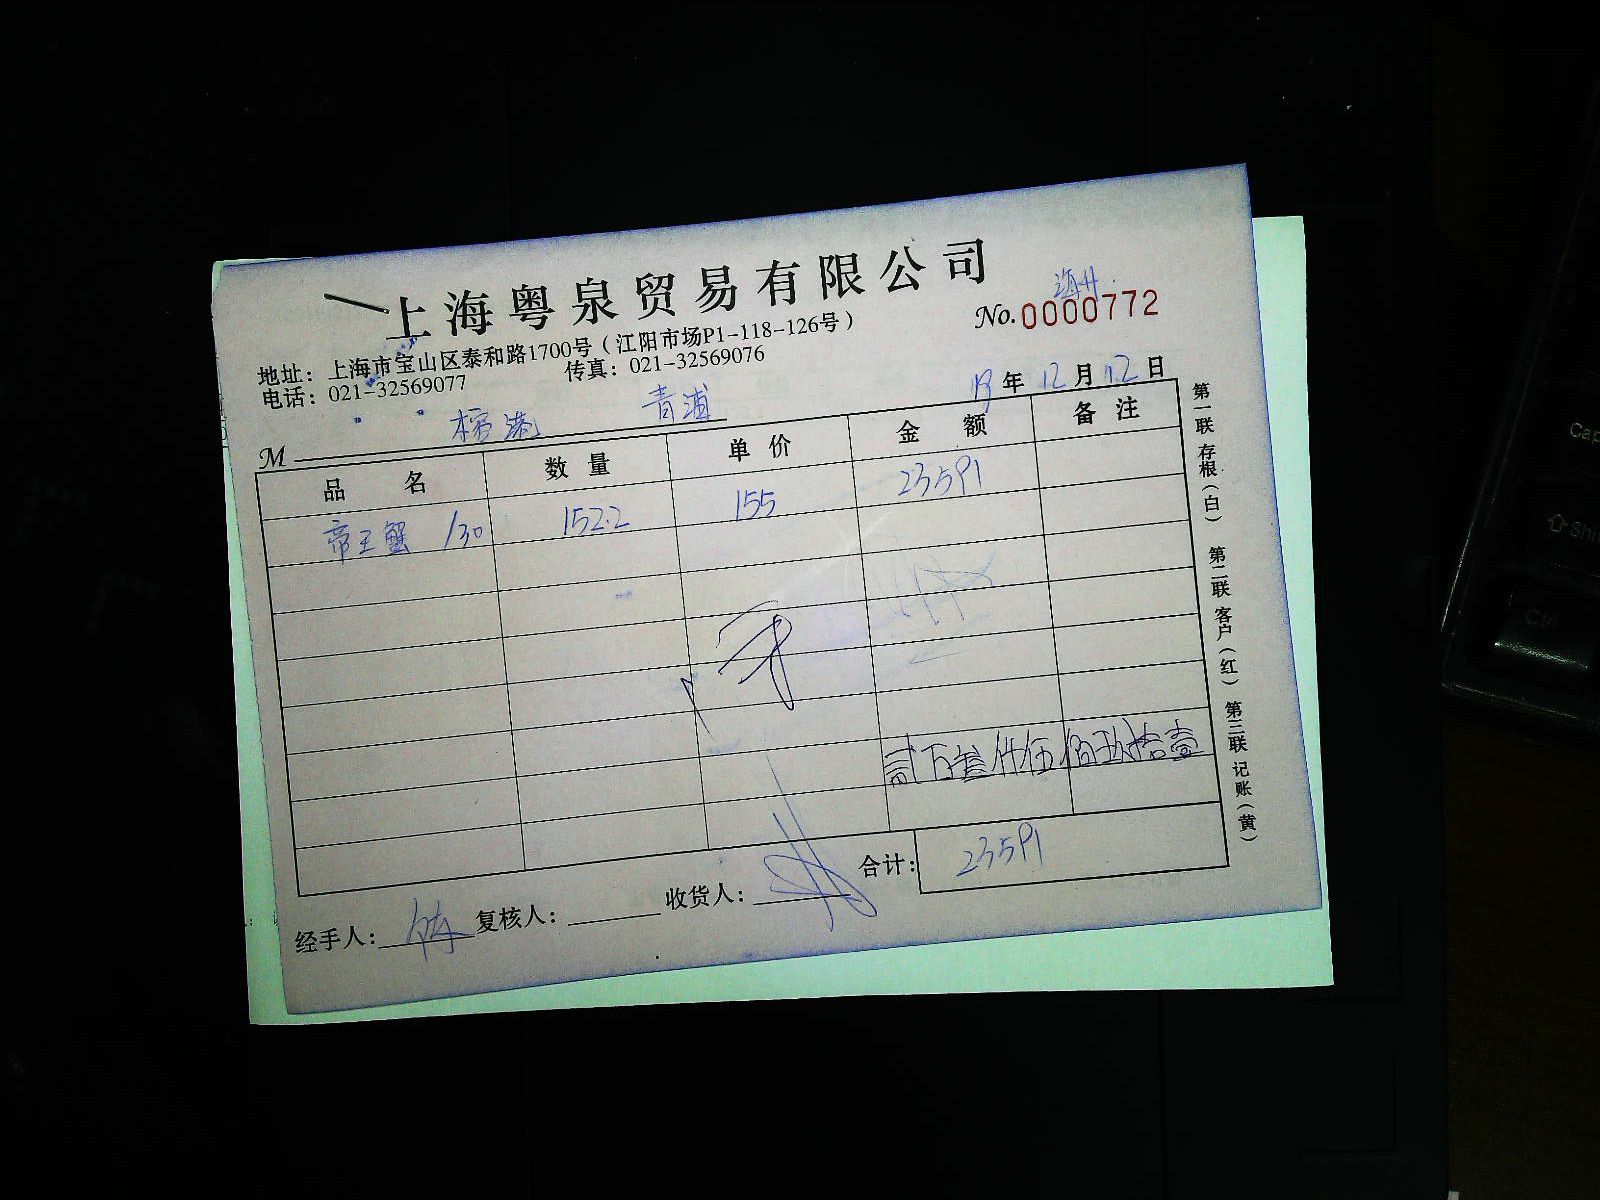 上海粤泉贸易有限公司
No. 0000772
地址：上海市宝山区泰和路1700号（江阳市场P1-118-126号）
电话：021-32569077 传真：021-32569076
19年12月12日
M 青浦
品名 数量 单价 金额 备注
帝王蟹 130 152.2 155 23591
贰万叁仟伍佰玖拾壹
合计：23591
经手人： 复核人： 收货人：
第一联 存根（白） 第二联 客户（红） 第三联 记账（黄）
Cap
Shi
Ctrl